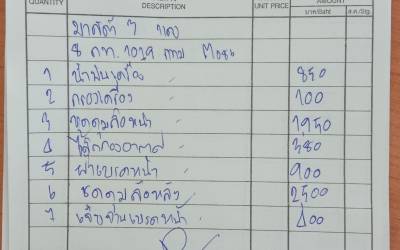 QUANTITY DESCRIPTION UNIT PRICE AMOUNT
บาท/Baht ส.ต./Stg.
มาสด้า 3
8 กท. 1029 กทม
1 น้ำมันเครื่อง 850
2 กรองเครื่อง 100
3 ชุดดุมล้อหน้า 1,950
4 ไส้กรองอากาศ 380
5 ผ้าเบรคหน้า 900
6 ชุดดุมล้อหลัง 2,500
7 เจียจานเบรคหน้า 400